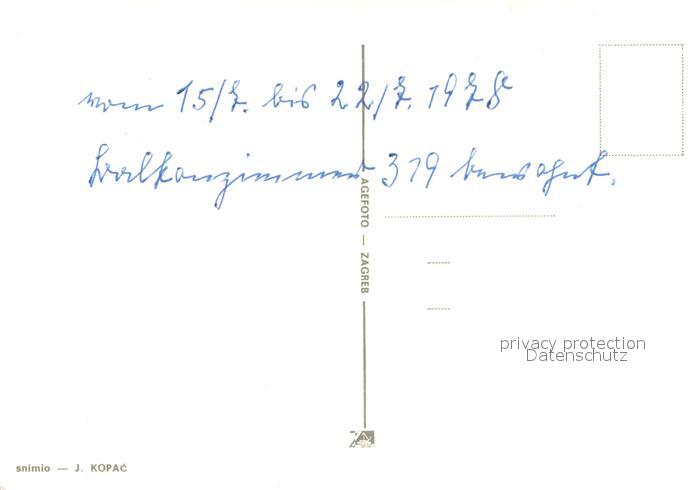 vom 15/7. bis 22/7. 1978
Balkonzimmer 319 bewohnt.
AGEFOTO — ZAGREB
privacy protection
Datenschutz
snimio — J. KOPAČ